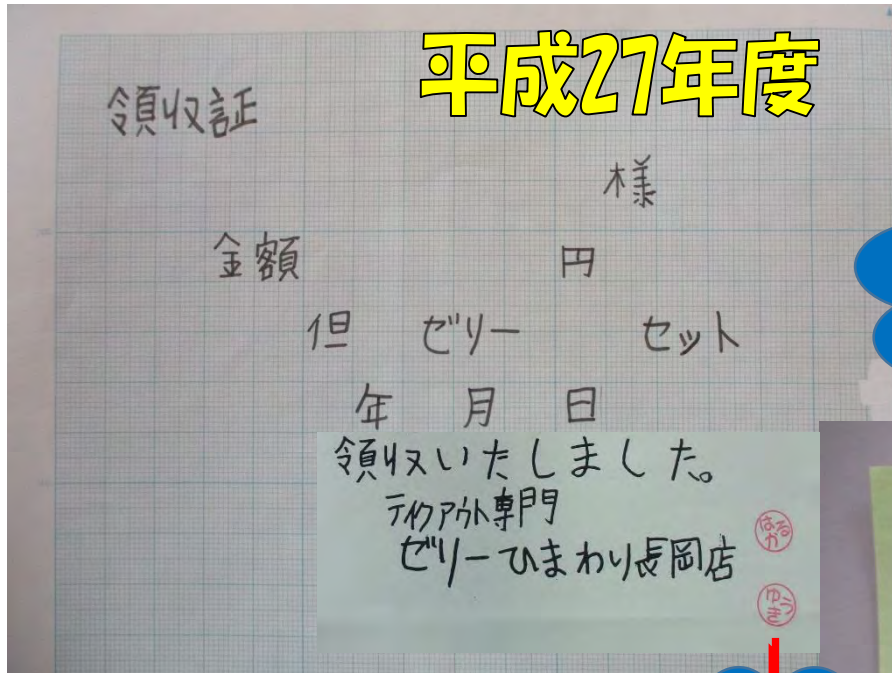 平成27年度
領収証
様
金額 円
但 ゼリー セット
年 月 日
領収いたしました。
テイクアウト専門
ゼリーひまわり長岡店
はるか
ゆうき